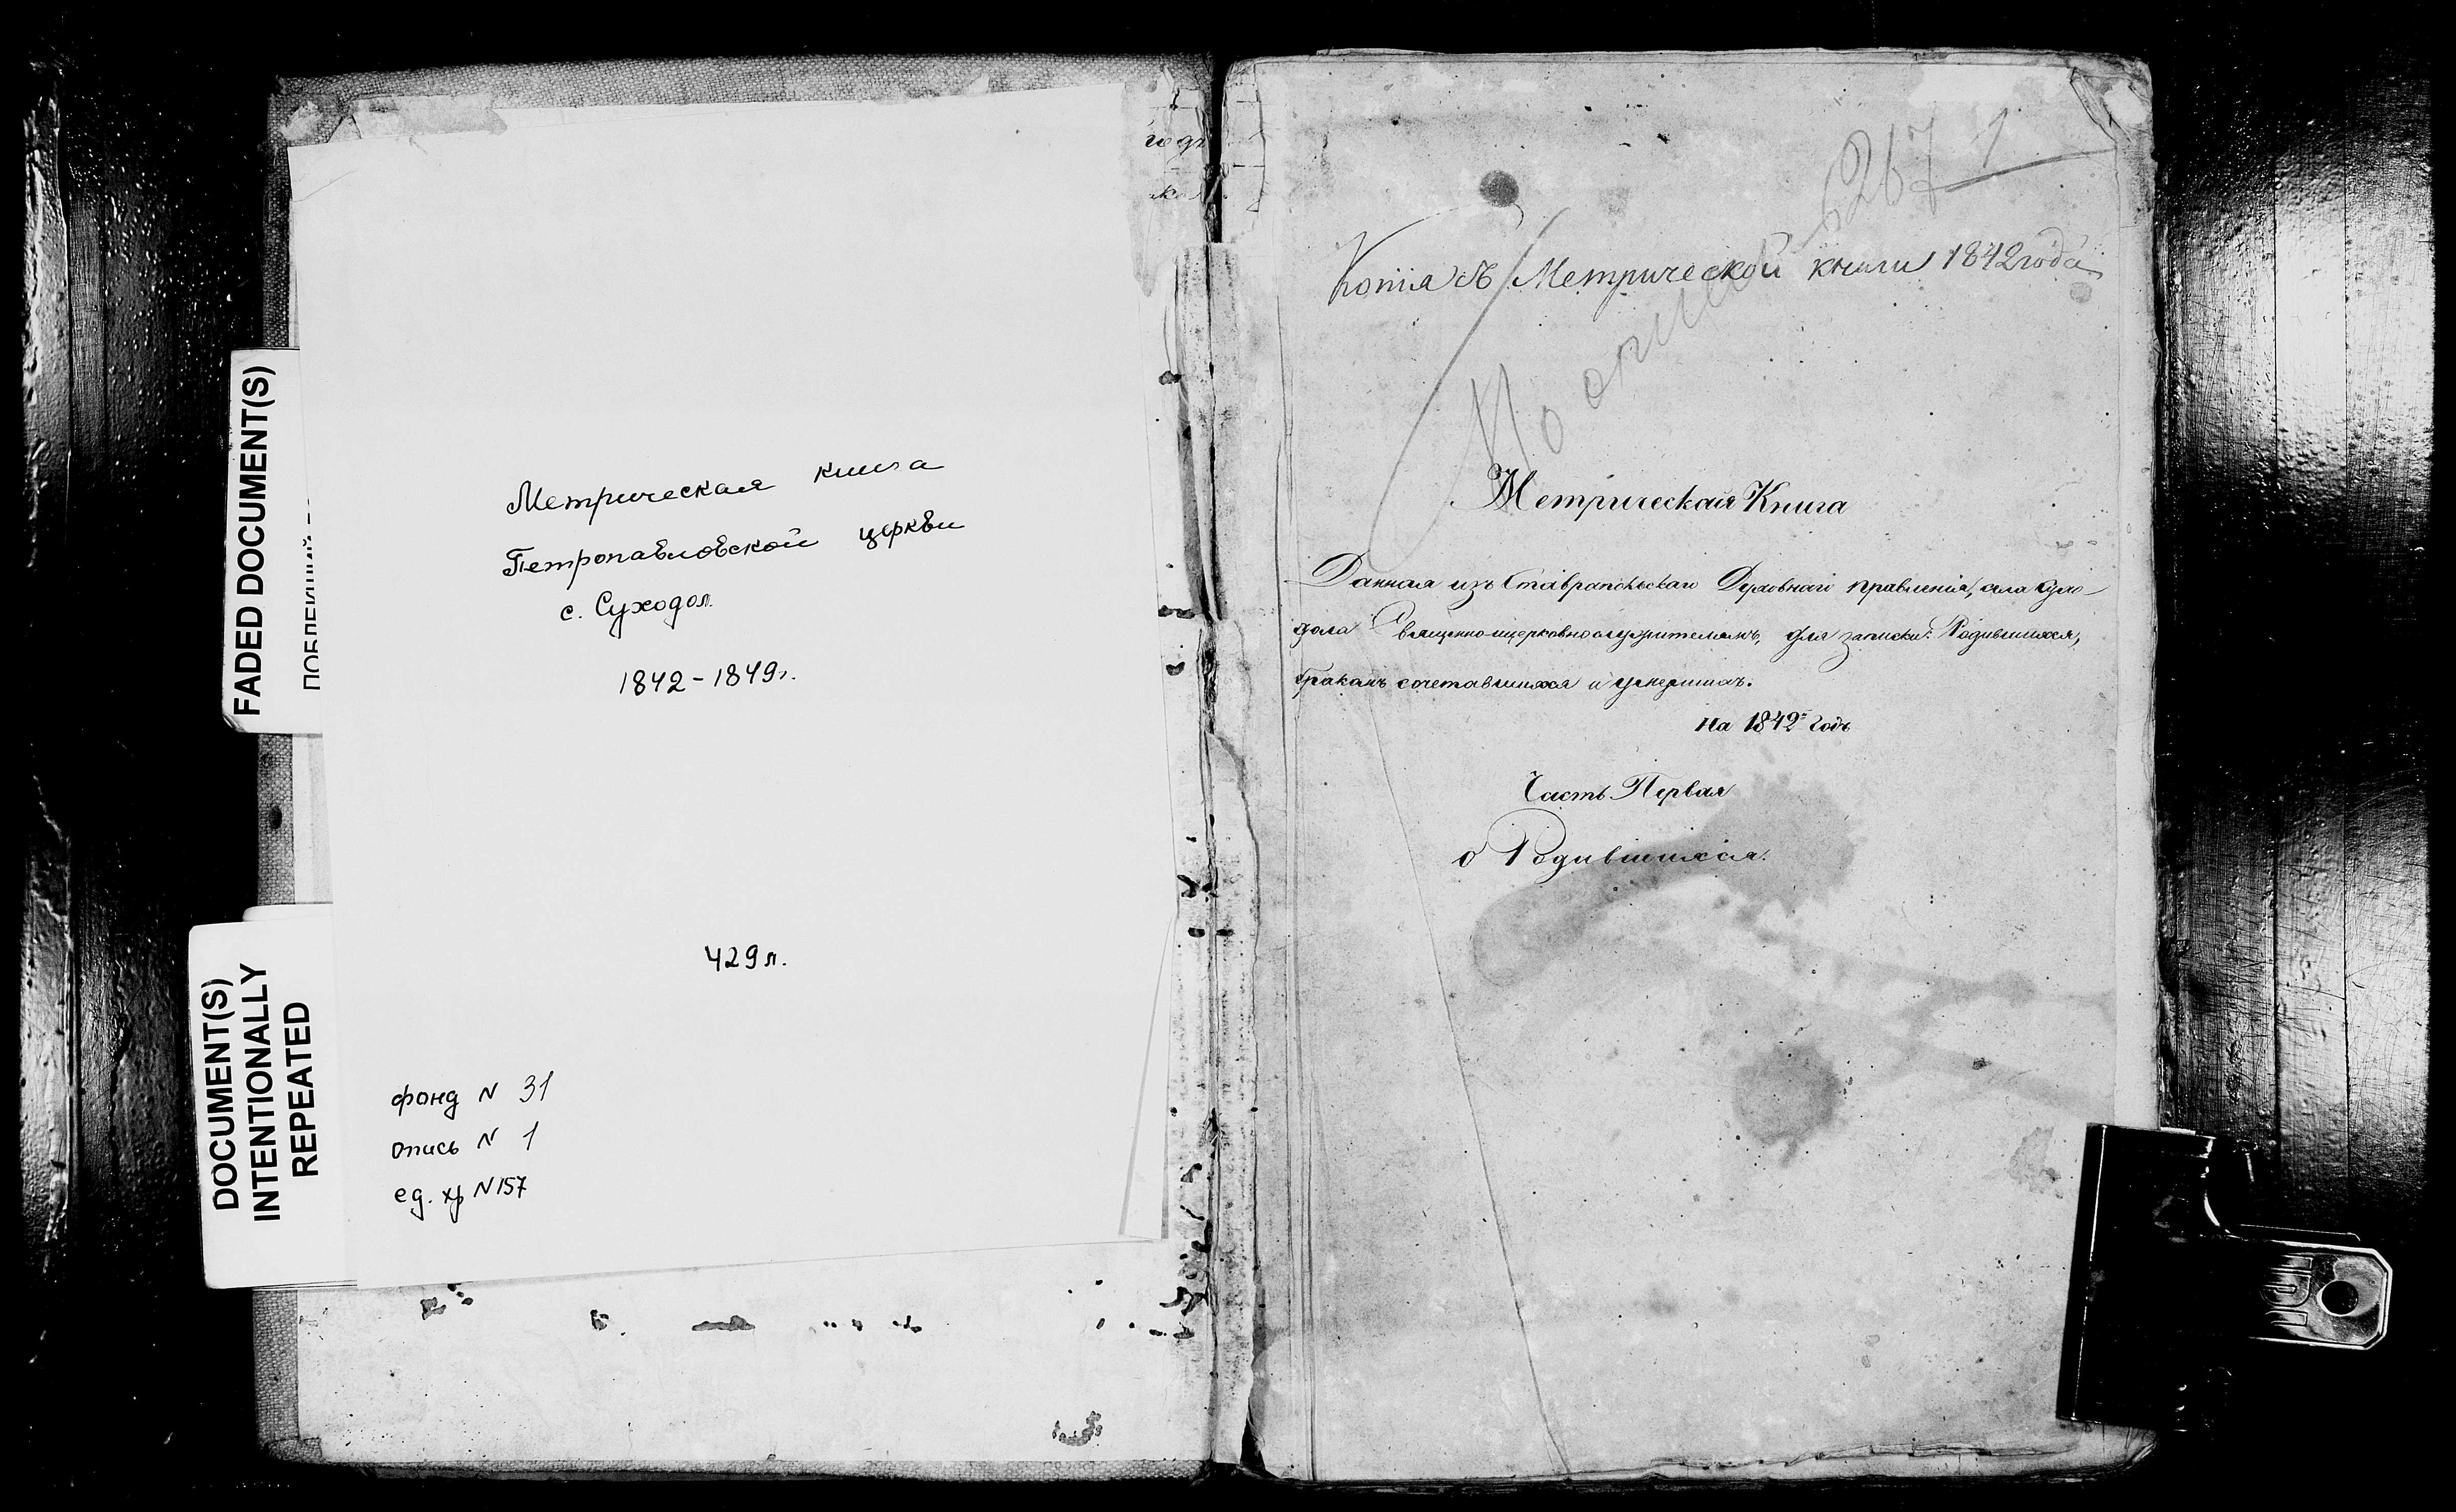 FADED DOCUMENT(S)
DOCUMENT(S)
INTENTIONALLY
REPEATED
Метрическая книга
Петропавловской церкви
с. Суходол
1842-1849г.
429 л.
фонд N 31
опись N 1
ед. хр N 157
1
267
Копія съ Метрической книги 1842 года
Метрическая Книга
Данная изъ Ставропольскаго Духовнаго правленія, села Сухо-
дола Священноицерковнослужителямъ, для записки: Родившихся,
бракомъ сочетавшихся и умершихъ.
На 1842й годъ
Часть Первая
о Родившихся.